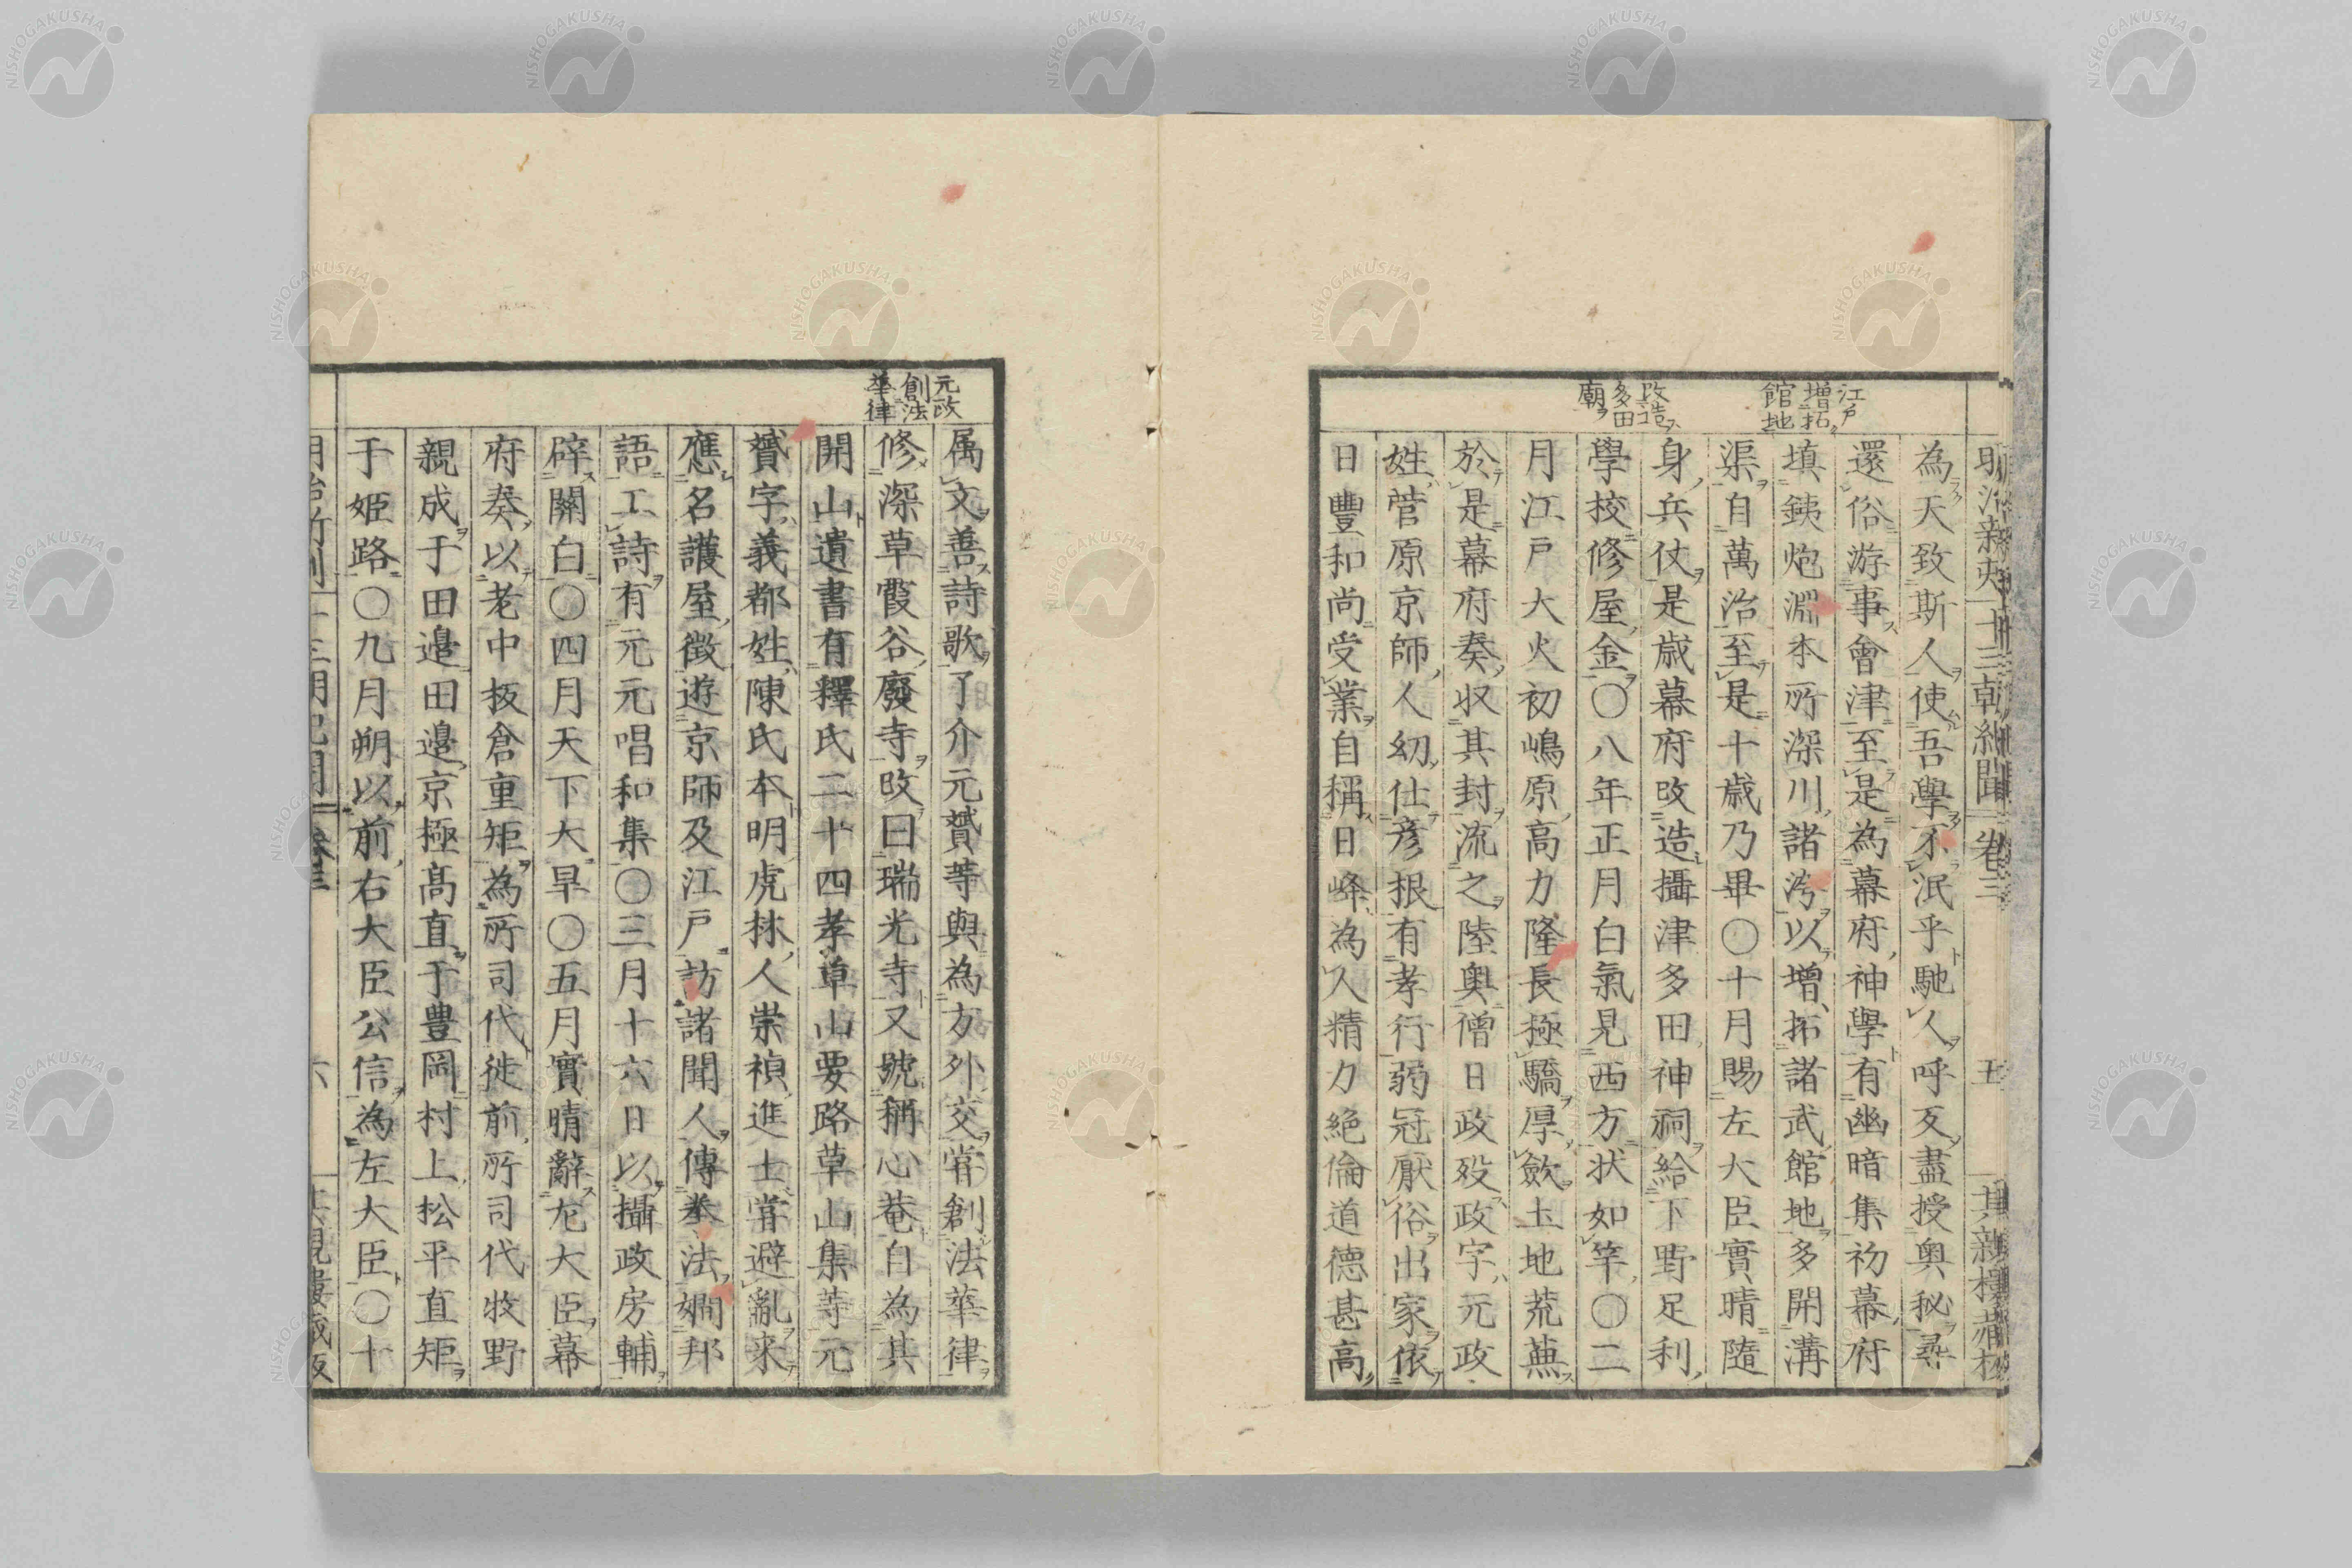 明治新刻十三朝紀聞 卷三 五
江戸
増拓
館地
改造
多田
廟
為天致斯人使吾學不泯乎馳人呼反盡授奥秘尋
還俗游事會津至是為幕府神學有幽暗集初幕府
填銕炮淵本所深川諸沟以増拓諸武館地多開溝
渠自萬治至是十歳乃畢〇十月賜左大臣實晴隨
身兵仗是歳幕府改造攝津多田神祠給下野足利
學校修屋金〇八年正月白氣見西方状如竿〇二
月江戸大火初嶋原高力隆長極驕厚歛土地荒蕪
於是幕府奏收其封流之陸奥僧日政歿政字元政
姓菅原京師人幼仕彦根有孝行弱冠厭俗出家依
日豐和尚受業自稱日峰為人精力絶倫道德甚高
元政
創法
華律
属文善詩歌了介元贇等與為方外交嘗創法華律
修深草霞谷廢寺改曰瑞光寺又號稱心菴自為其
開山遺書有釋氏二十四孝草山要路草山集等元
贇字義都姓陳氏本明虎林人崇禎進士嘗避亂来
應名護屋徴遊京師及江戸訪諸聞人傳拳法嫺邦
語工詩有元元唱和集〇三月十六日以攝政房輔
辟關白〇四月天下大旱〇五月實晴辭左大臣幕
府奏以老中板倉重矩為所司代徙前所司代牧野
親成于田邉田邉京極高直于豊岡村上松平直矩
于姫路〇九月朔以前右大臣公信為左大臣〇十
六